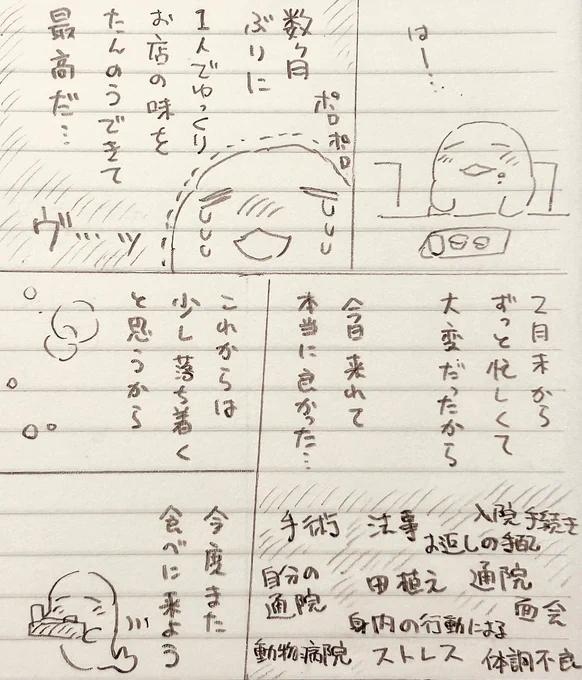 はー…
数ヶ月
ぶりに
1人でゆっくり
お店の味を
たんのうできて
最高だ…
ポロポロ
ポロ
ヴ…ッ
2月末から
ずっと忙しくて
大変だったから
今日来れて
本当に良かった…
これからは
少し落ち着く
と思うから
入院手続き
お返しの手配
法事
手術
通院
面会
田植え
自分の
通院
身内の行動による
ストレス
体調不良
動物病院
今度また
食べに来よう